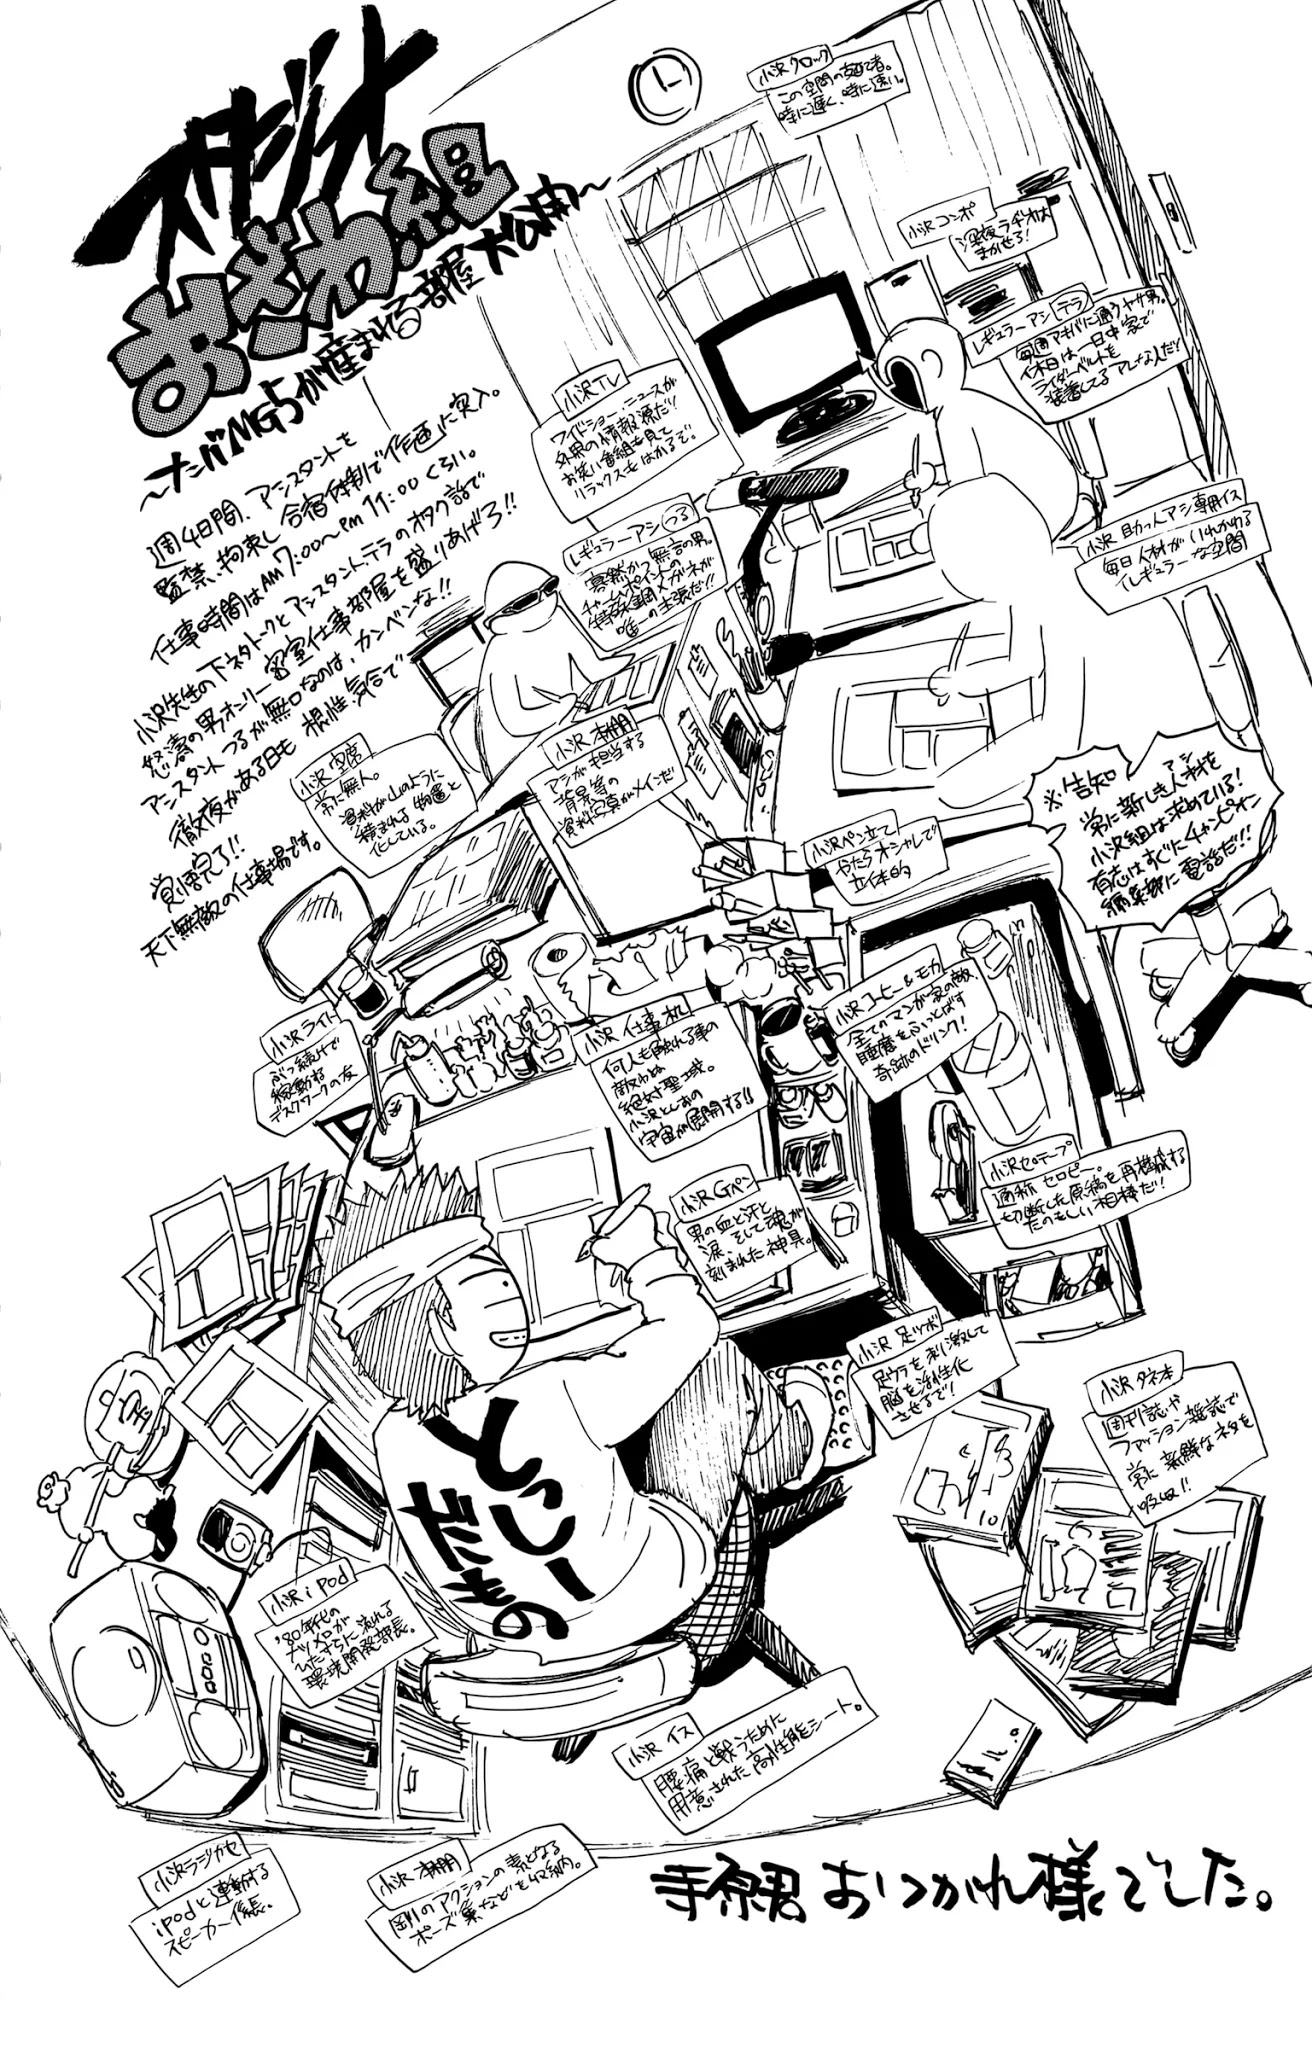 スタジオ
おざわ組
～ナンバMG5が産まれる部屋大公開～
週4日間、アシスタントを
監禁、拘束し合宿体制で「作画」に突入。
仕事時間はAM7:00～PM11:00くらい。
小沢先生の下ネタトークとアシスタント、テラのオタク話で
怒濤の男オンリー密室仕事部屋を盛りあげろ!!
アシスタントつるが無口なのは、カンベンな!!
徹夜がある日も根性、気合で
覚悟完了!!
天下無敵の仕事場です。
小沢クロック
この空間の支配者。
時に遅く、時に速い。
小沢コンポ
深夜ラヂオは
まかせろ!
レギュラーアシ(テラ)
毎週アキバに通うヤサ男。
休日は一日中家で
ライダーベルトを
装着してるアレな人だ!
小沢TV
ワイドショー、ニュースが
外界の情報源だ!
お笑い番組を見て
リラックスもはかるぞ。
レギュラーアシ(つる)
寡黙かつ無言の男。
チャームポイントの
特殊鋼メガネが
唯一の主張だ!!
小沢 助っ人アシ専用イス
毎日人材がいれかわる
イレギュラーな空間
小沢 空席
常に無人。
資料が山のように
積まれる物置と
化している。
小沢 本棚
アシが担当する
背景等の
資料写真がメインだ
小沢ペン立て
やたらオシャレで
立体的
※告知
常に新しき人材(アシ)を
小沢組は求めている!
有志はすぐにチャンピオン
編集部に電話だ!!
小沢ライト
ぶっ続けで
稼動する
デスクワークの友
小沢 仕事机
何人も触れる事の
敵わぬ
絶対聖域。
小沢としおの
宇宙が展開する!!
小沢コーヒー&モカ
全てのマンガ家の敵、
睡魔をふっとばす
奇跡のドリンク!
小沢セロテープ
通称セロピー。
切断した原稿を再構成する
たのもしい相棒だ!
小沢Gペン
男の血と汗と
涙、そして魂が
刻まれた神具。
小沢 足ツボ
足ウラを刺激して
脳を活性化
させるぞ!
小沢 タネ本
週刊誌や
ファッション雑誌で
常に新鮮なネタを
吸収!!
とっしー
だもの
小沢 iPod
'80年代の
ナツメロが
ひたすらに流れる
環境開発部長。
小沢 イス
腰痛と戦うために
用意された高性能シート。
小沢ラジカセ
iPodと連動する
スピーカー係長。
小沢 本棚
剛のアクションの素となる
ポーズ集などを収納。
寺原君 おつかれ様でした。